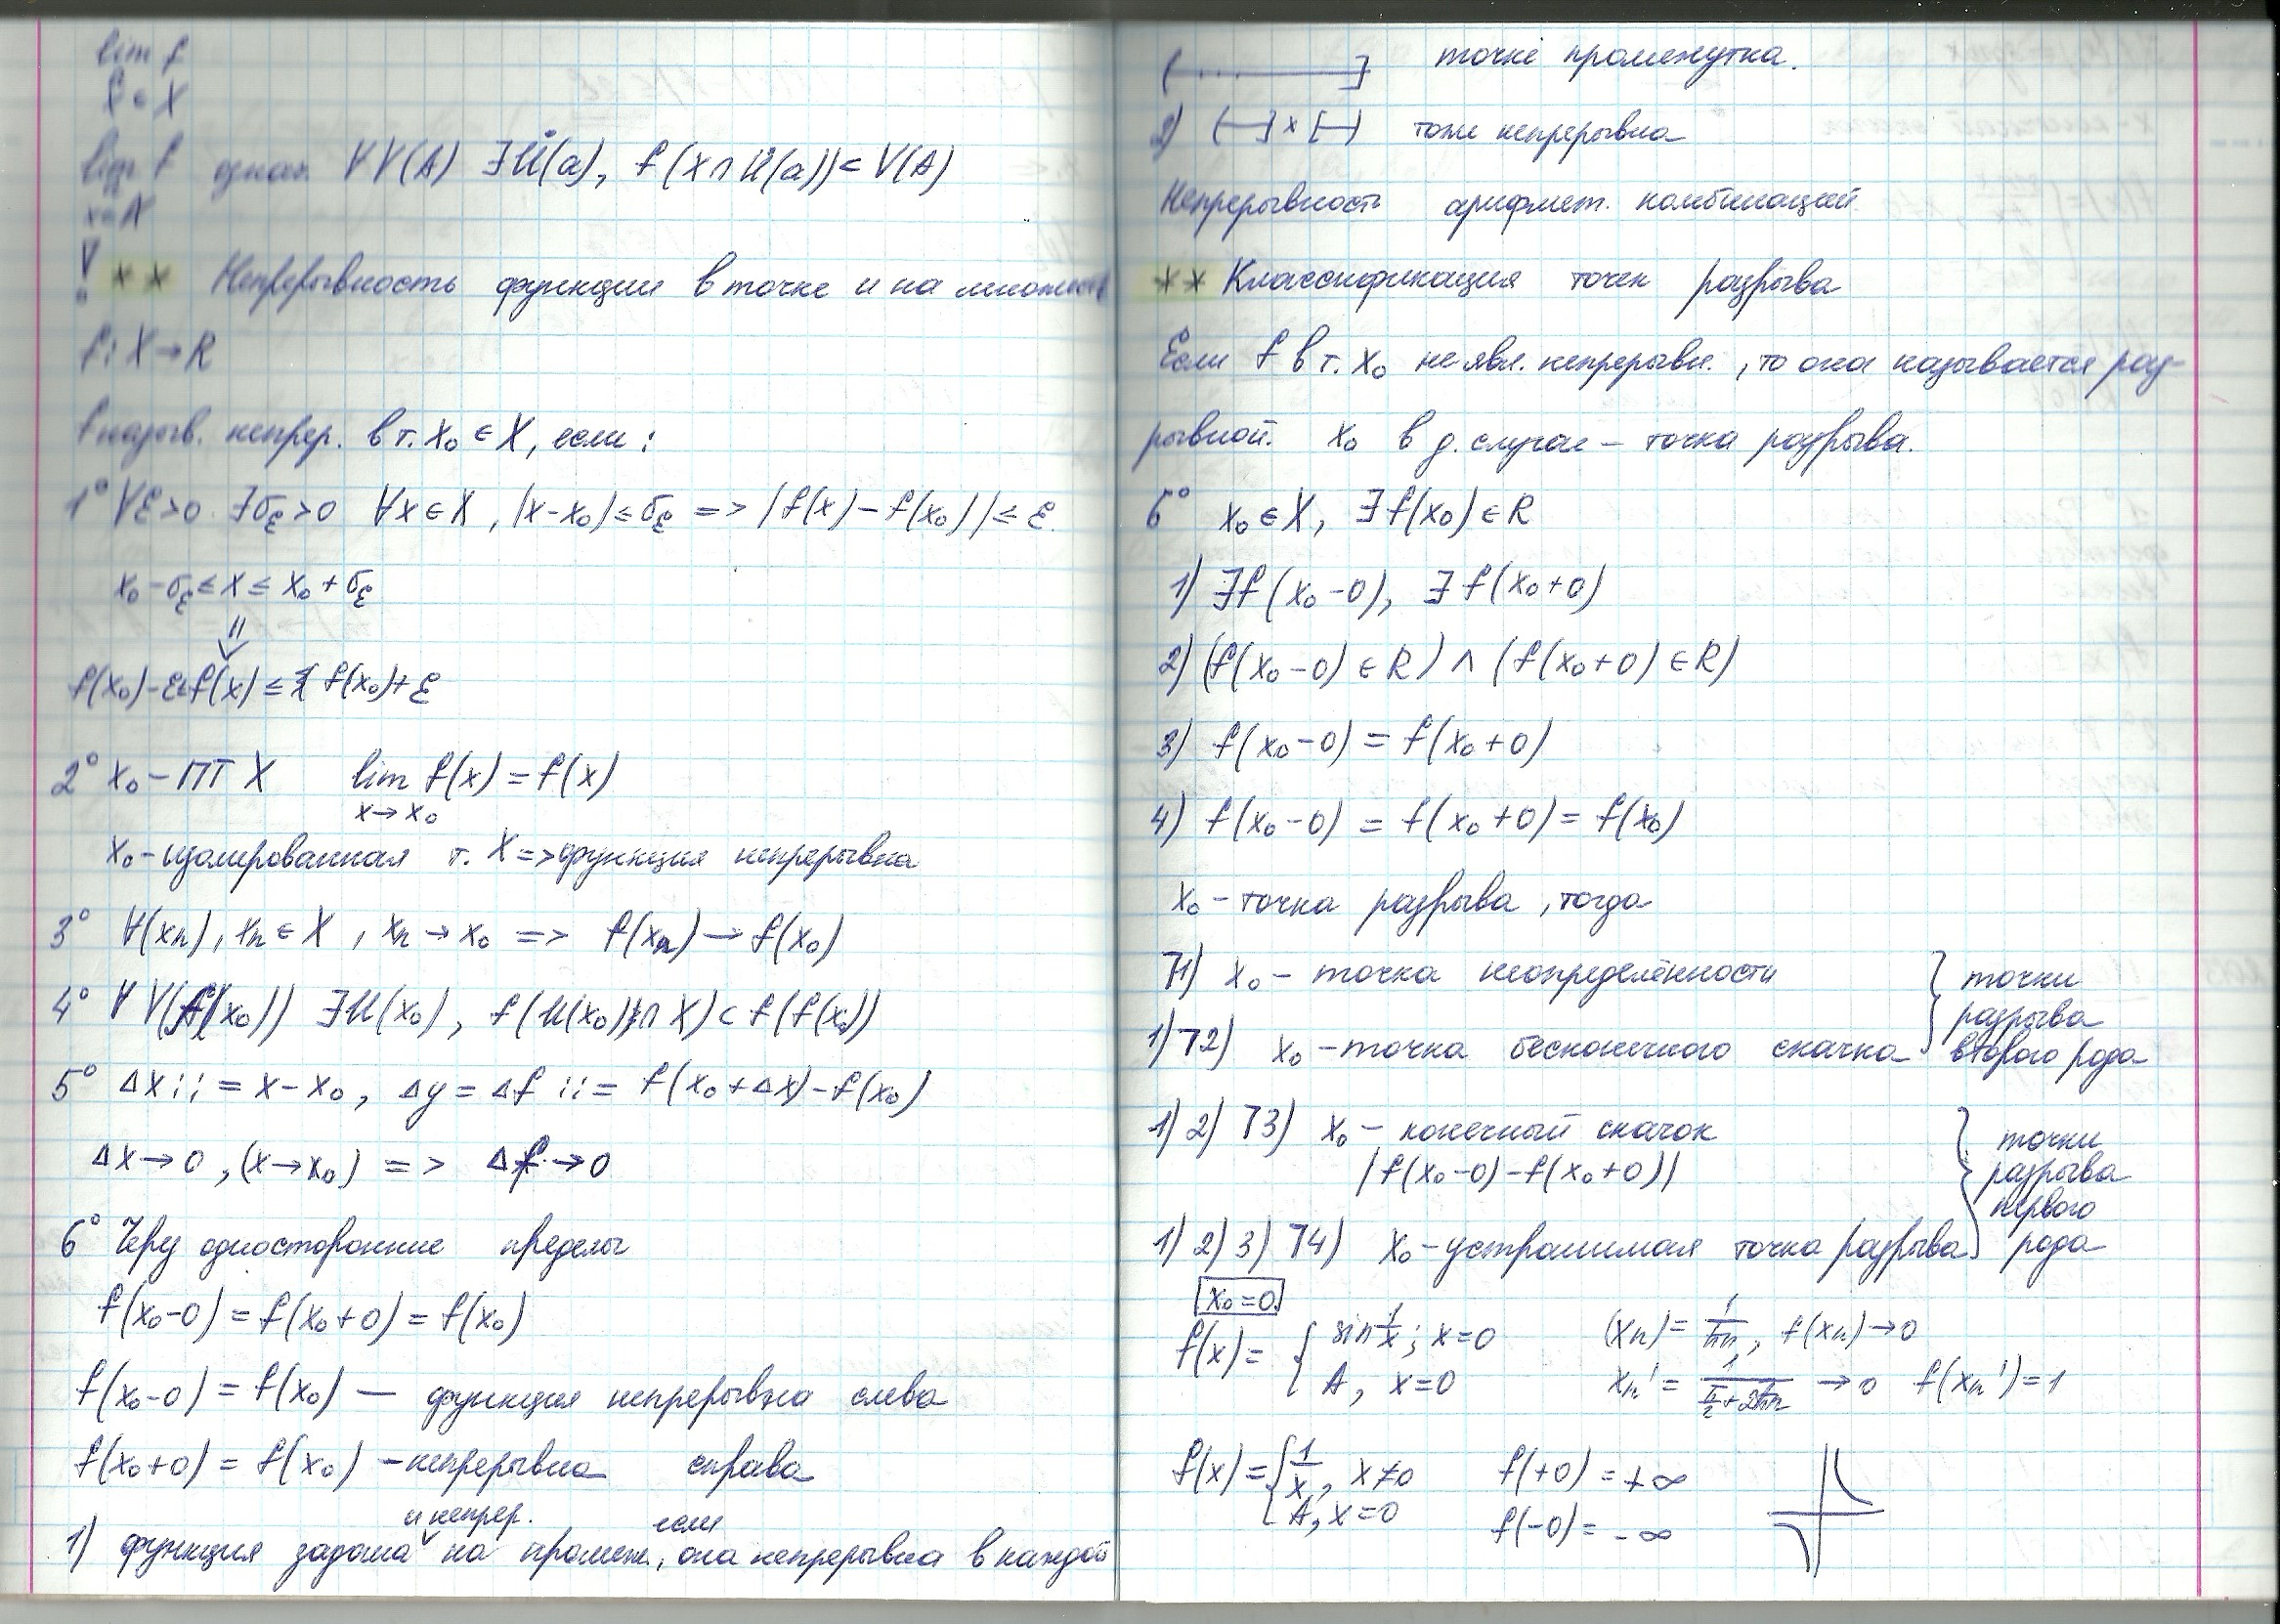 lim f
x ∈ X
lim f означ. ∀V(A) ∃U̇(a), f(X∩U̇(a))⊂V(A)
x→A
! ** Непрерывность функции в точке и на множеств
f: X→R
f назыв. непрер. в т. x₀ ∈ X, если:
1° ∀ε>0 ∃δ_ε>0 ∀x∈X, |x-x₀|≤δ_ε => |f(x)-f(x₀)|≤ε.
x₀-δ_ε≤x≤x₀+δ_ε
⇓
f(x₀)-ε≤f(x)≤f(x₀)+ε
2° x₀-ПТ X lim f(x)=f(x)
x→x₀
x₀-изолированная т. X=>функция непрерывна
3° ∀(xₙ), xₙ∈X, xₙ→x₀ => f(xₙ)→f(x₀)
4° ∀V(f(x₀)) ∃U(x₀), f(U(x₀)∩X)⊂f(f(x₀))
5° Δx::=x-x₀, Δy=Δf::=f(x₀+Δx)-f(x₀)
Δx→0, (x→x₀) => Δf→0
6° Через односторонние пределы
f(x₀-0)=f(x₀+0)=f(x₀)
f(x₀-0)=f(x₀) — функция непрерывна слева
f(x₀+0)=f(x₀) -непрерывна справа
и непрер. если
1) функция задана на промеж., она непрерывна в каждой
(...] точке промежутка.
2) (—] x [—) тоже непрерывна
Непрерывность арифмет. комбинаций
** Классификация точек разрыва
Если f в т. x₀ не явл. непрерывн., то она называется раз-
рывной. x₀ в д. случае - точка разрыва.
6° x₀∈X, ∃f(x₀)∈R
1) ∃f(x₀-0), ∃f(x₀+0)
2) (f(x₀-0)∈R)∧(f(x₀+0)∈R)
3) f(x₀-0)=f(x₀+0)
4) f(x₀-0)=f(x₀+0)=f(x₀)
x₀-точка разрыва, тогда
⅂1) x₀- точка неопределённости
1) ⅂2) x₀-точка бесконечного скачка
точки
разрыва
второго рода
1) 2) ⅂3) x₀- конечный скачок
|f(x₀-0)-f(x₀+0)|
1) 2) 3) ⅂4) x₀-устранимая точка разрыва
точки
разрыва
первого
рода
x₀=0
f(x)={ sin 1/x; x=0 (xₙ)=1/πn, f(xₙ)→0
A, x=0 xₙ'=1/(π/2+2πn)→0 f(xₙ')=1
f(x)={ 1/x, x≠0 f(+0)=+∞
A, x=0 f(-0)=-∞